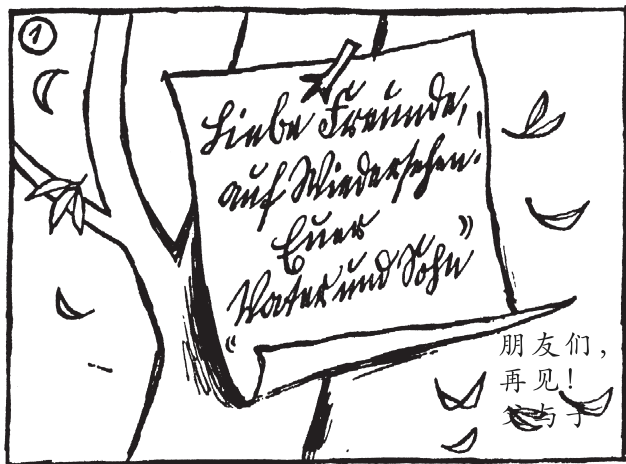 1
Liebe Freunde,
auf Wiedersehen.
Euer
„Vater und Sohn”
朋友们，
再见！
父与子